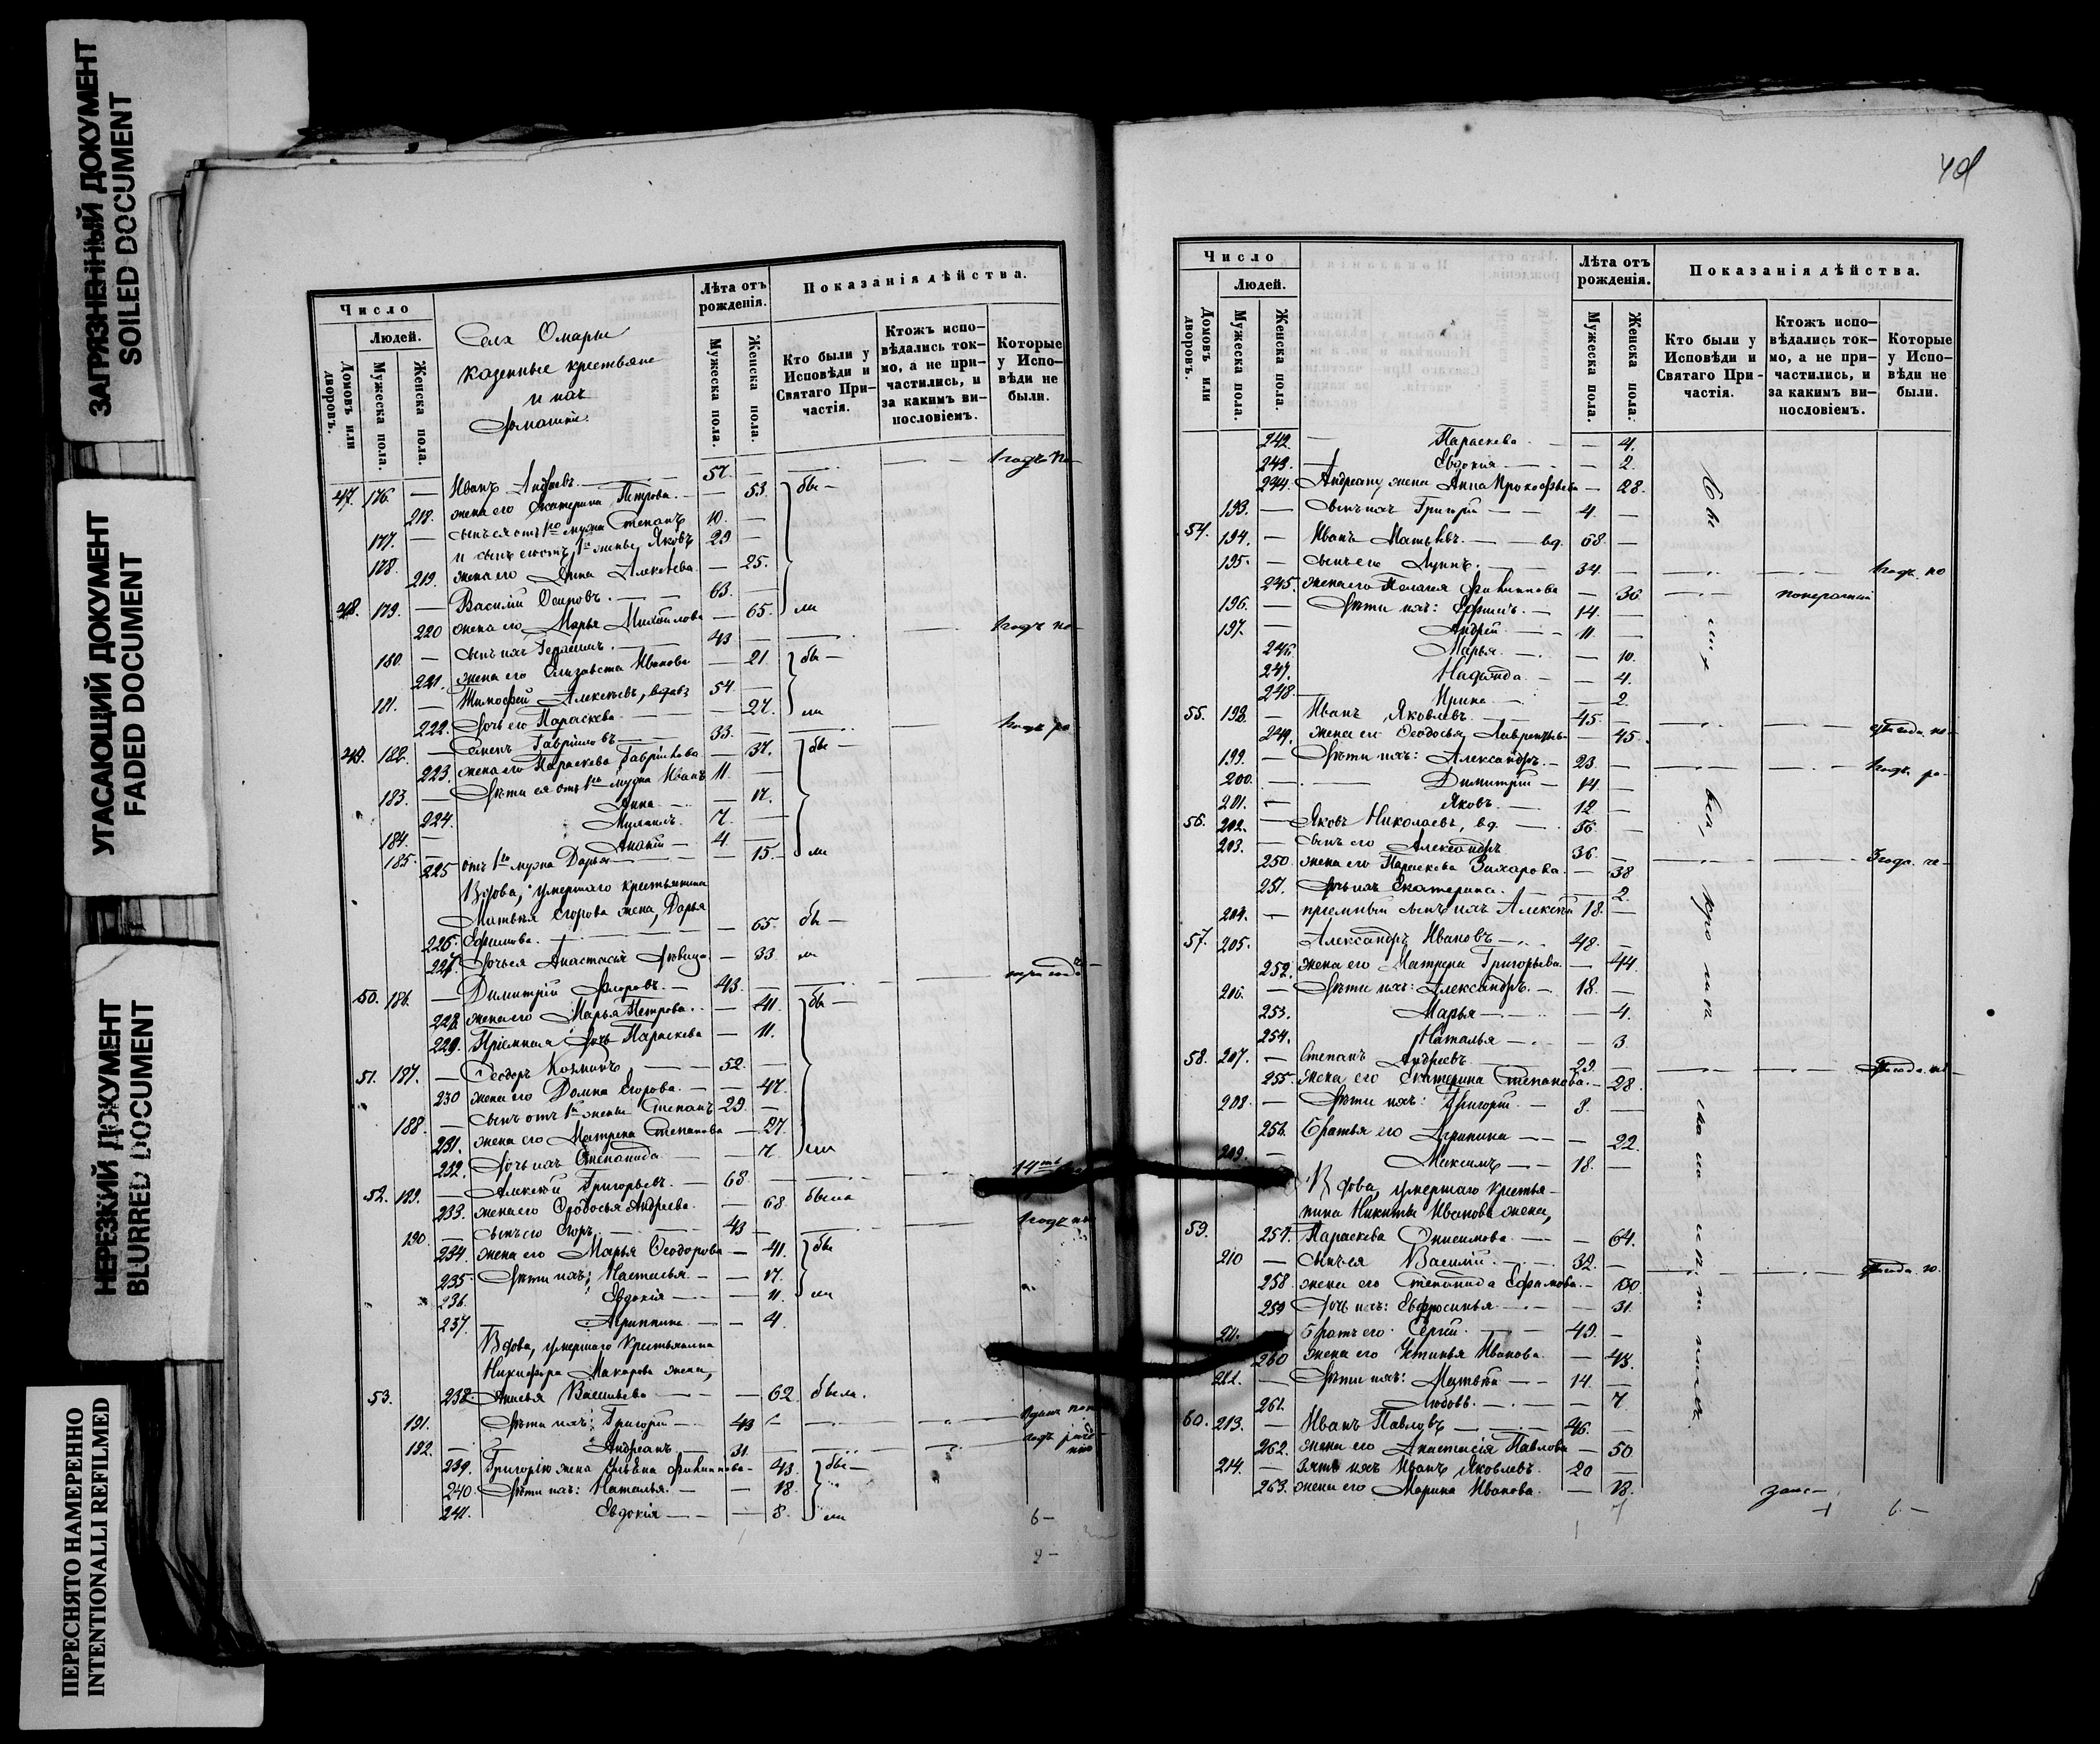 ЗАГРЯЗНЕННЫЙ ДОКУМЕНТ
SOILED DOCUMENT
УГАСАЮЩИЙ ДОКУМЕНТ
FADED DOCUMENT
НЕРЕЗКИЙ ДОКУМЕНТ
BLURRED DOCUMENT
ПЕРЕСНЯТО НАМЕРЕННО
INTENTIONALLI REFILMED
Число
Людей.
Домовъ или дворовъ.
Мужеска пола.
Женска пола.
Села Омары
казенные крестьяне
и ихъ
домашніе.
Лѣта отъ рожденія.
Мужеска пола.
Женска пола.
Показанія дѣйства.
Кто были у Исповѣди и Святаго Причастія.
Ктожъ исповѣдались токмо, а не причастились, и за какимъ винословіемъ.
Которые у Исповѣди не были.
47. 176. — Иванъ 57. —
218. жена его Екатерина Петрова. — 53. бы—
177. — сынъ ея отъ 1го мужа Степанъ 10. —
178. и сынъ его отъ 1й жены Яковъ 29 —
219. жена его Анна Алексѣева — 25.
48. 179. — Василій Осиповъ. 63. —
220 жена его Марья Михайлова — 65. ли
180. — сынъ ихъ Герасимъ. 43 —
221. жена его Елизавета Иванова — 21. бы—
181. — Тимофей Алексѣевъ, вдовъ 54. —
222. дочь его Параскева — 27. ли
49. 182. — Гавріиловъ 33. —
223. жена его Параскева Гавріилова — 37. бы—
183. — Дѣти ея отъ 1го мужа Иванъ 11. —
224. Анна — 17.
184. — 7. —
185. — 4. —
225 отъ 1го мужа Дарья — 15. ли
Вдова, умершаго крестьянина
Матвѣя Егорова жена, Дарья
226. Ефимова. — 65. бы—
227. дочь ея Анастасія дѣвица — 33. ла
50. 186. — Димитрій Флоровъ. 43. —
228. жена его Марья Петрова. — 41. бы—
229. Пріемная дочь Параскева — 11.
51. 187. — Ѳеодоръ Козминъ 52. —
230 жена его Домна Егорова. — 47.
188. — сынъ отъ 1й жены Степанъ 29. —
231. жена его Матрена Степанова — 27.
232. дочь ихъ Степанида — 7. ли
52. 189. — Алексѣй Григорьевъ. 68. —
233. жена его Ѳеодосья Андреева. — 68. была
190. — сынъ его Егоръ. 43 —
234. жена его Марья Ѳеодорова — 41. бы
235. Дѣти ихъ: Настасья — 17.
236. Евдокія — 11. ли
237. Агриппина — 4.
Вдова, умершаго крестьянина
Никифора Макарова жена,
53. 238. Анисья Васильева — 62. была.
191. Дѣти ихъ: Григорій 43 —
192. — Андреанъ. 31. —
239. Григорію жена Ульяна Филиппова — 43. бы—
240. Дѣти ихъ: Наталья. — 18.
241. Евдокія — 8. ли
6 —
2 —
Число
Людей.
Домовъ или дворовъ.
Мужеска пола.
Женска пола.
Лѣта отъ рожденія.
Мужеска пола.
Женска пола.
Показанія дѣйства.
Кто были у Исповѣди и Святаго Причастія.
Ктожъ исповѣдались токмо, а не причастились, и за какимъ винословіемъ.
Которые у Исповѣди не были.
242. — Параскева — 4.
243. — Евдокія — 2.
244. Андреану жена Анна Прокофьева — 28.
193. — сынъ ихъ Григорій 4. —
54. 194. — Иванъ Матвѣевъ. вд. 68. —
195. — сынъ его Лупъ. 34. —
245. жена его Пелагея Филиппова — 36
196. — Дѣти ихъ: Ефимъ. 14. —
197. — Андрей 11. —
246. Марья — 10.
247. Надежда — 4.
248. Ирина — 2.
55. 198. — Иванъ Яковлевъ 45. —
249. жена его Ѳеодосья Лаврентьева — 45.
199. — Дѣти ихъ: Александръ. 23. —
200. — Димитрій 14. —
201. — Яковъ 12 —
56. 202. — Яковъ Николаевъ, вд. 56. —
203. — сынъ его Александръ 36. —
250. жена его Параскева Захарова. — 38
251. дочь ихъ Екатерина. — 2.
204. — пріемный сынъ ихъ Алексѣй 18. —
57. 205. Александръ Ивановъ 48. —
252. жена его Матрена Григорьева. — 44.
206. — Дѣти ихъ: Александръ. 18. —
253. Марья — 4.
254. Наталья — 3.
58. 207. — Степанъ Андреевъ 29. —
255. жена его Екатерина Степанова. — 28.
208. — Дѣти ихъ: Григорій. 3. —
256. Братья его Агрипина — 22.
209. — Максимъ 18. —
Вдова, умершаго крестья-
нина Никиты Иванова жена,
59. 257. Параскева Онисимова — 64.
210 — сынъ ея Василій. 32. —
258. жена его Степанида Ефимова. — 30.
259 Дочь ихъ: Евфросинья — 31.
211. братъ его Сергій. 49. —
260 жена его Устинья Иванова. — 43.
212. — Дѣти ихъ: Матвѣй 14. —
261. Любовь. — 7.
60. 213. — Иванъ Павловъ 46. —
262. жена его Анастасія Павлова — 50
214. — зять ихъ Иванъ Яковлевъ. 20 —
263. жена его Марина Иванова. — 18.
6. —